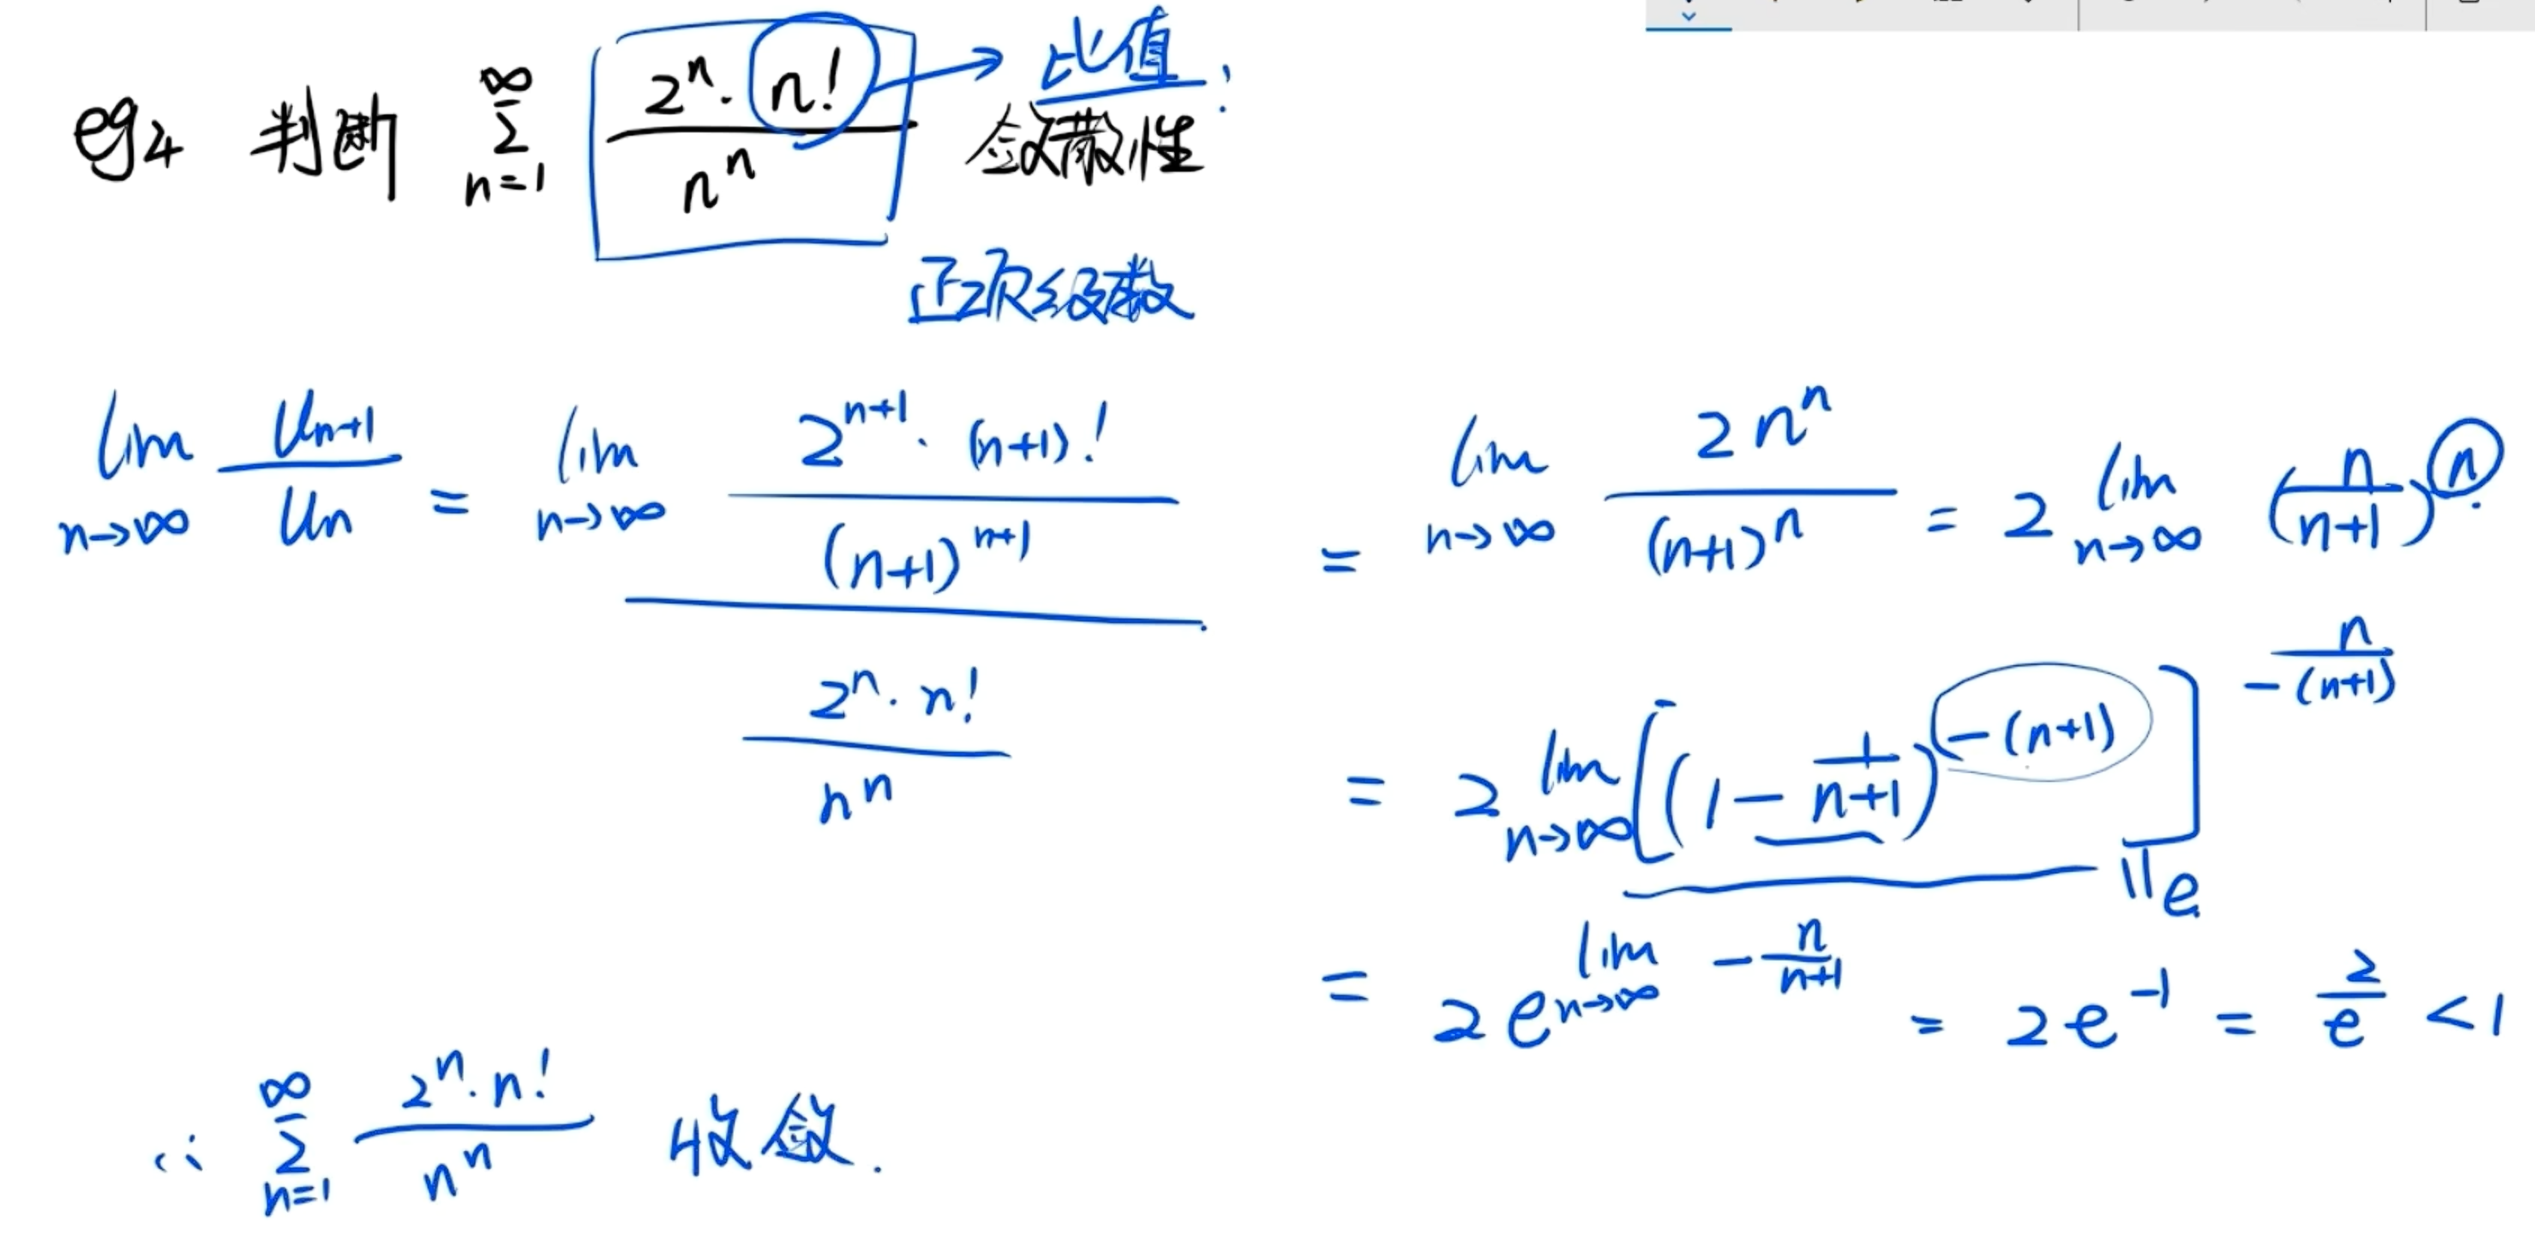 eg4 判断 \sum_{n=1}^{\infty} \frac{2^n \cdot n!}{n^n} 敛散性 → 比值!
正项级数
\lim_{n→∞} \frac{U_{n+1}}{U_n} = \lim_{n→∞} \frac{\frac{2^{n+1} \cdot (n+1)!}{(n+1)^{n+1}}}{\frac{2^n \cdot n!}{n^n}} = \lim_{n→∞} \frac{2n^n}{(n+1)^n} = 2 \lim_{n→∞} (\frac{n}{n+1})^n
= 2 \lim_{n→∞} [(1-\frac{1}{n+1})^{-(n+1)}]^{\frac{n}{-(n+1)}}
|| e
= 2e^{\lim_{n→∞} -\frac{n}{n+1}} = 2e^{-1} = \frac{2}{e} < 1
∴ \sum_{n=1}^{\infty} \frac{2^n \cdot n!}{n^n} 收敛.